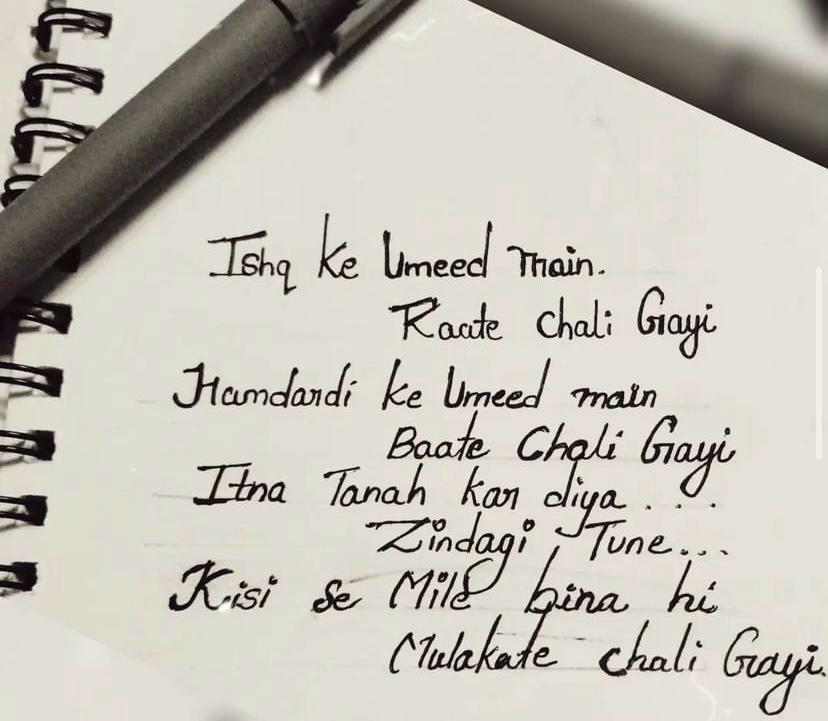 Ishq ke Umeed main.
Raate chali Gayi
Hamdardi ke Umeed main
Baate Chali Gayi
Itna Tanah kar diya . . .
Zindagi, Tune...
Kisi se Mile bina hi
Mulakate chali Gayi.